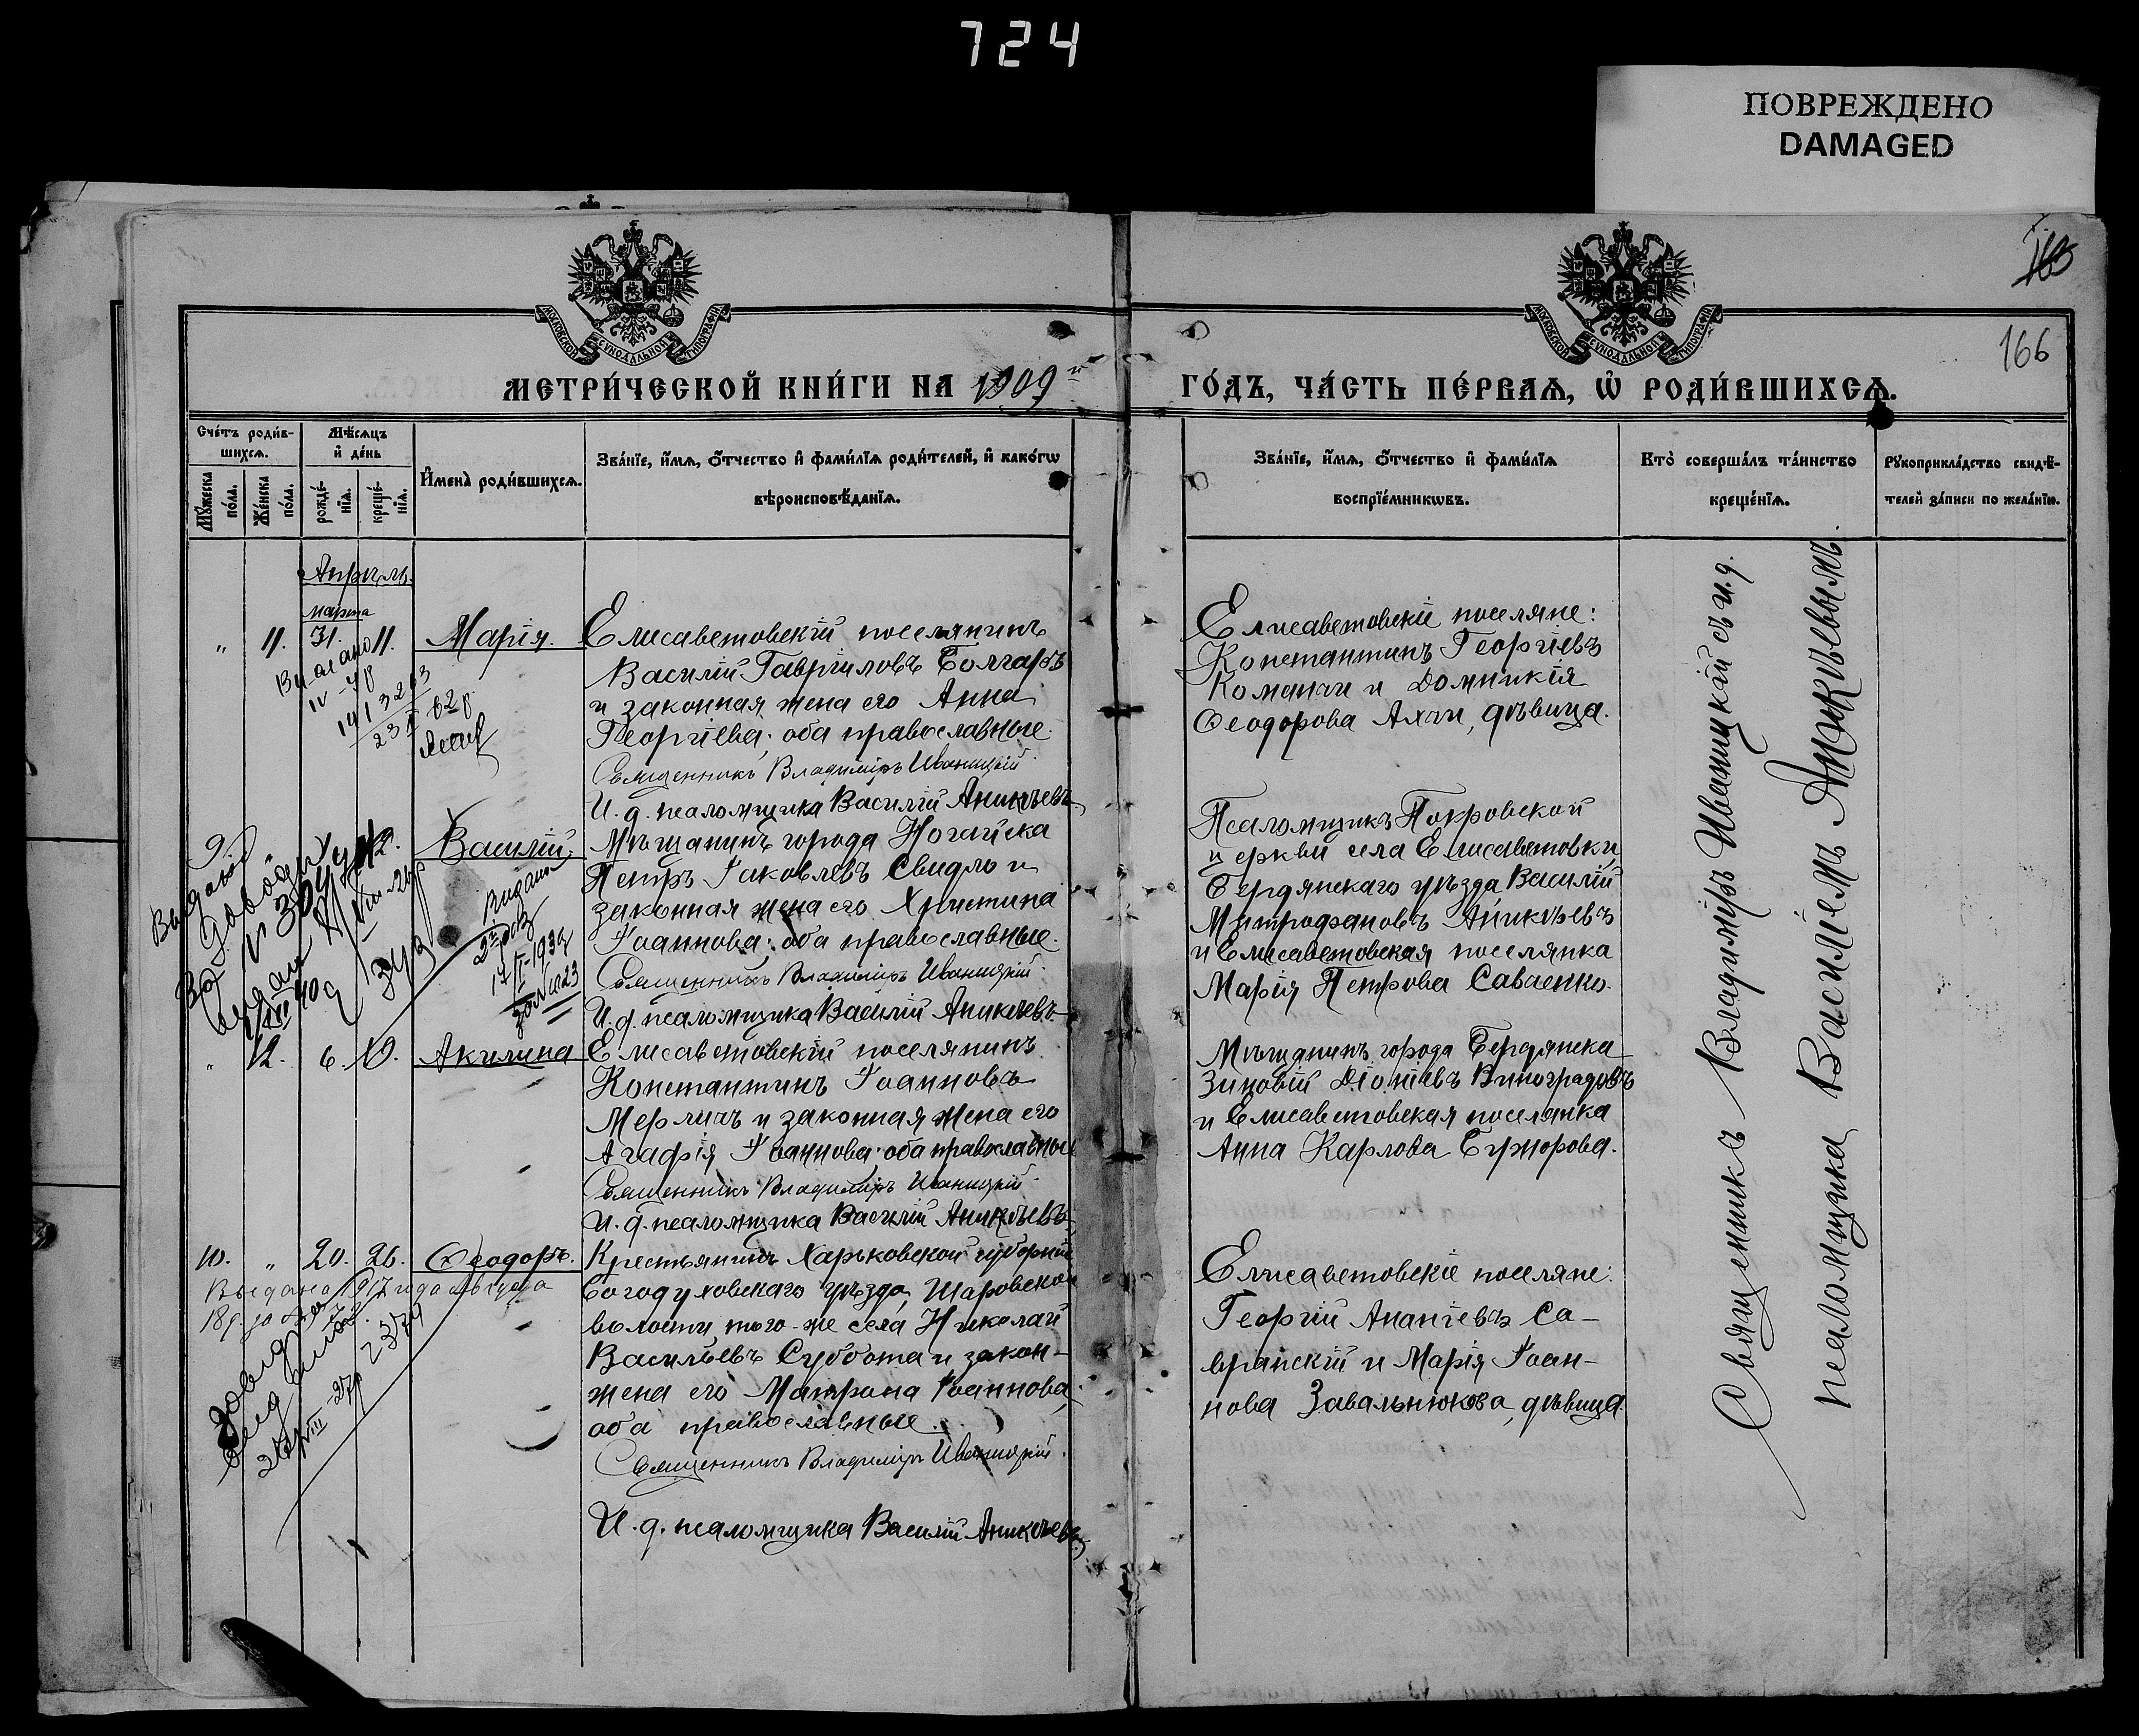 724
ПОВРЕЖДЕНО
DAMAGED
163
166
МОСКОВСКОЙ СѴНОДАЛЬНОЙ ТИПОГРАФІИ
МОСКОВСКОЙ СѴНОДАЛЬНОЙ ТИПОГРАФІИ
МЕТРИ́ЧЕСКОЙ КНИ́ГИ НА 1909 й
ГО́ДЪ, ЧА́СТЬ ПЕ́РВАѦ, Ѡ҆ РОДИ́ВШИХСѦ.
Сче́тъ роди́в-
шихсѧ.
Мꙋ́жеска по́ла.
Же́нска по́ла.
Мѣ́сѧцъ
и҆ де́нь
рожде́-
нїѧ.
креще́-
нїѧ.
И҆мена̀ роди́вшихсѧ.
Зва́нїе, и҆́мѧ, ѻ҆́тчество и҆ фами́лїѧ роди́телей, и҆ како́гѡ
вѣроисповѣ́данїѧ.
Зва́нїе, и҆́мѧ, ѻ҆́тчество и҆ фами́лїѧ
воспрїе́мникѡвъ.
Кто̀ соверша́лъ та́инство
креще́нїѧ.
Рꙋкоприкла́дство свидѣ́-
телей за́писи по жела́нїю.
Апрѣль.
марта
" 11. 31. 11. Марія.
Елисаветовскій поселянинъ
Василій Гавріиловъ Болгаръ
и законная жена его Анна
Георгіева; оба православные.
Священникъ Владиміръ Иваницкій.
И. д. псаломщика Василій Аникѣевъ.
Елисаветовскіе поселяне:
Константинъ Георгіевъ
Команчи и Домникія
Ѳеодорова Ахчи, дѣвица.
9. " 12. Василій.
Мѣщанинъ города Ногайска
Петръ Іаковлевъ Свидло и
законная жена его Христина
Іоаннова; оба православные.
Священникъ Владиміръ Иваницкій.
И. д. псаломщика Василій Аникѣевъ.
Псаломщикъ Покровской
церкви села Елисаветовки,
Бердянскаго уѣзда Василій
Митрофановъ Аникѣевъ
и Елисаветовская поселянка
Марія Петрова Саваенко.
" 12. 6. 19. Акилина
Елисаветовскій поселянинъ
Константинъ Іоанновъ
Мерличъ и законная жена его
Агафія Іоаннова; оба православные
Священникъ Владиміръ Иваницкій.
И. д. псаломщика Василій Аникѣевъ.
Мѣщанинъ города Бердянска
Зиновій Діонісіевъ Виноградовъ
и Елисаветовская поселянка
Анна Карлова Буторова.
10. " 20. 26. Ѳеодоръ.
Крестьянинъ Харьковской губерніи
Богодуховскаго уѣзда, Шаровской
волости, того-же села Николай
Васильевъ Суббота и закон-
жена его Матрона Іоаннова;
оба православные.
Священникъ Владиміръ Иваницкій.
И. д. псаломщика Василій Аникѣевъ
Елисаветовскіе поселяне:
Георгій Ананіевъ Са-
вранскій и Марія Іоан-
нова Завальнюкова, дѣвица.
Священникъ Владиміръ Иваницкій съ и. д.
псаломщика Василіемъ Аникѣевымъ.
Видано
1413263
Видано
2й раз
за № 1023
Выдана 1917 года августа